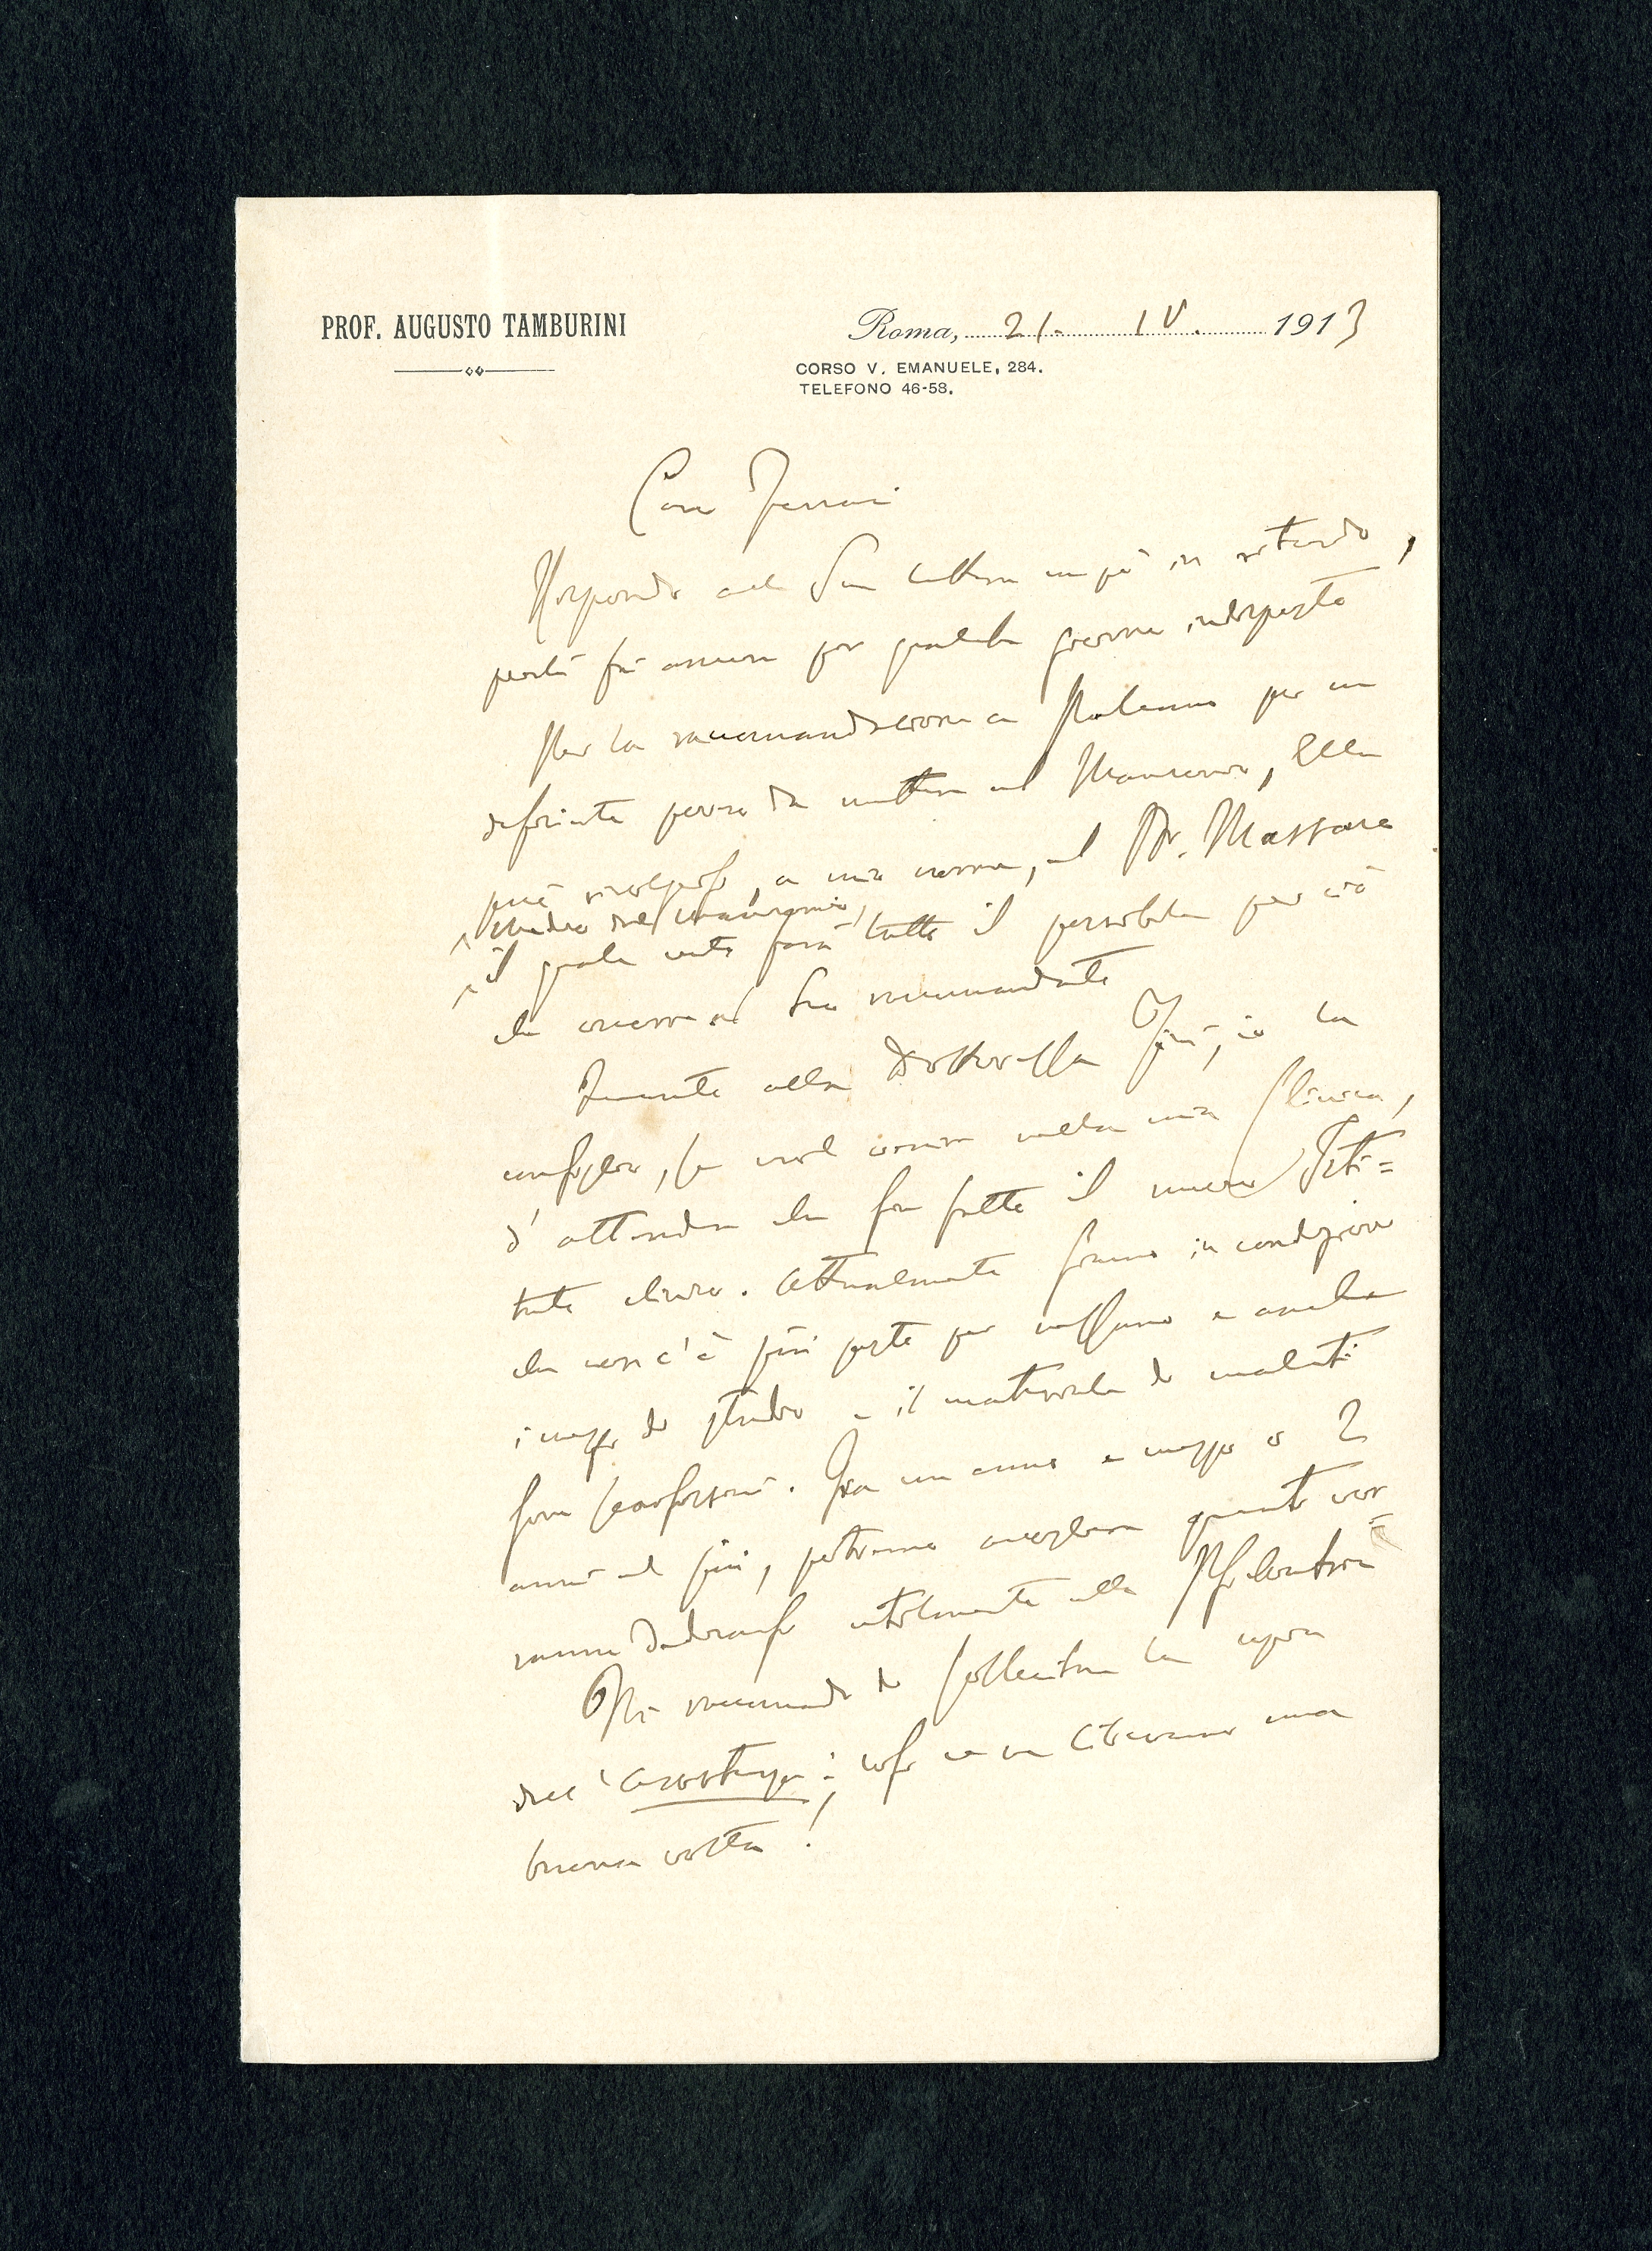 PROF. AUGUSTO TAMBURINI
Roma, 21. IV. 1913
CORSO V. EMANUELE, 284.
TELEFONO 46-58.
Caro Ferrari
Rispondo alla Sua lettera un po' in ritardo,
perché fui ancora per qualche giorno indisposto
Per la raccomandazione a Palermo per un
deficiente povero da mettere al Manicomio, Ella
può rivolgersi, a mio nome, al Dr. Massaro
Medico del Manicomio,
il quale certo farà tutto il possibile per ciò
che occorre al Suo raccomandato
Quanto alla Dottoressa io la
consiglio, se vuol venire nella mia Clinica,
d'attendere che sia fatto il nuovo Isti=
tuto clinico. Attualmente siamo in condizioni
che non c'è più posto per nessuno e anche
i mezzi di studio e il materiale di malati
sono scarsissimi. Fra un anno e mezzo o 2
anni al più, potremo accogliere quanti vor=
ranno dedicarsi utilmente alla Psichiatria
Mi raccomando di sollecitare la copia
dell'; così ce ne liberiamo una
buona volta!